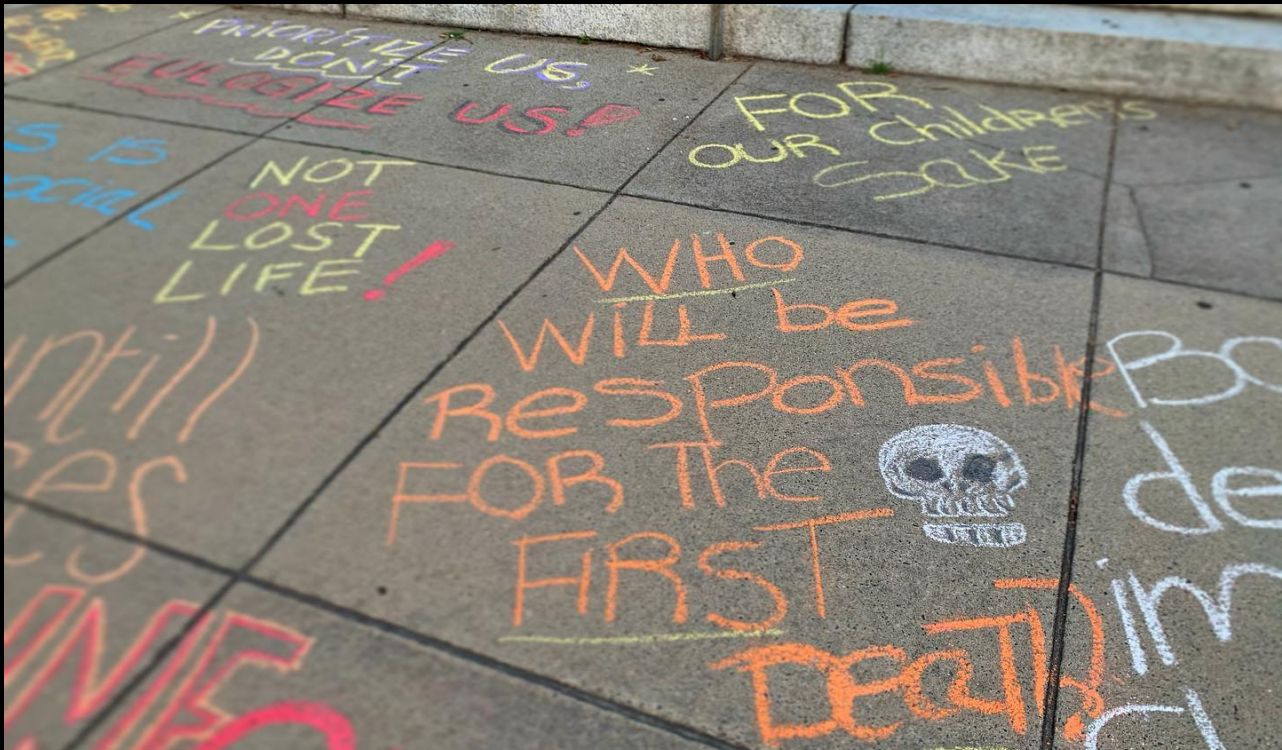 PRIORITIZE US,
DON'T
EULOGIZE US!
FOR
OUR Children's
SAKE
S IS
NOT
ONE
LOST
LIFE!
until
WHO
WiLL be
ResPonsible
FOR The
FIRST
DeaTh?
de
im